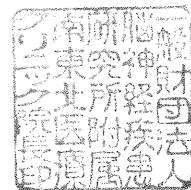 一般財団法人
脳神経疾患
研究所附属
南東北医療
クリニック院長印